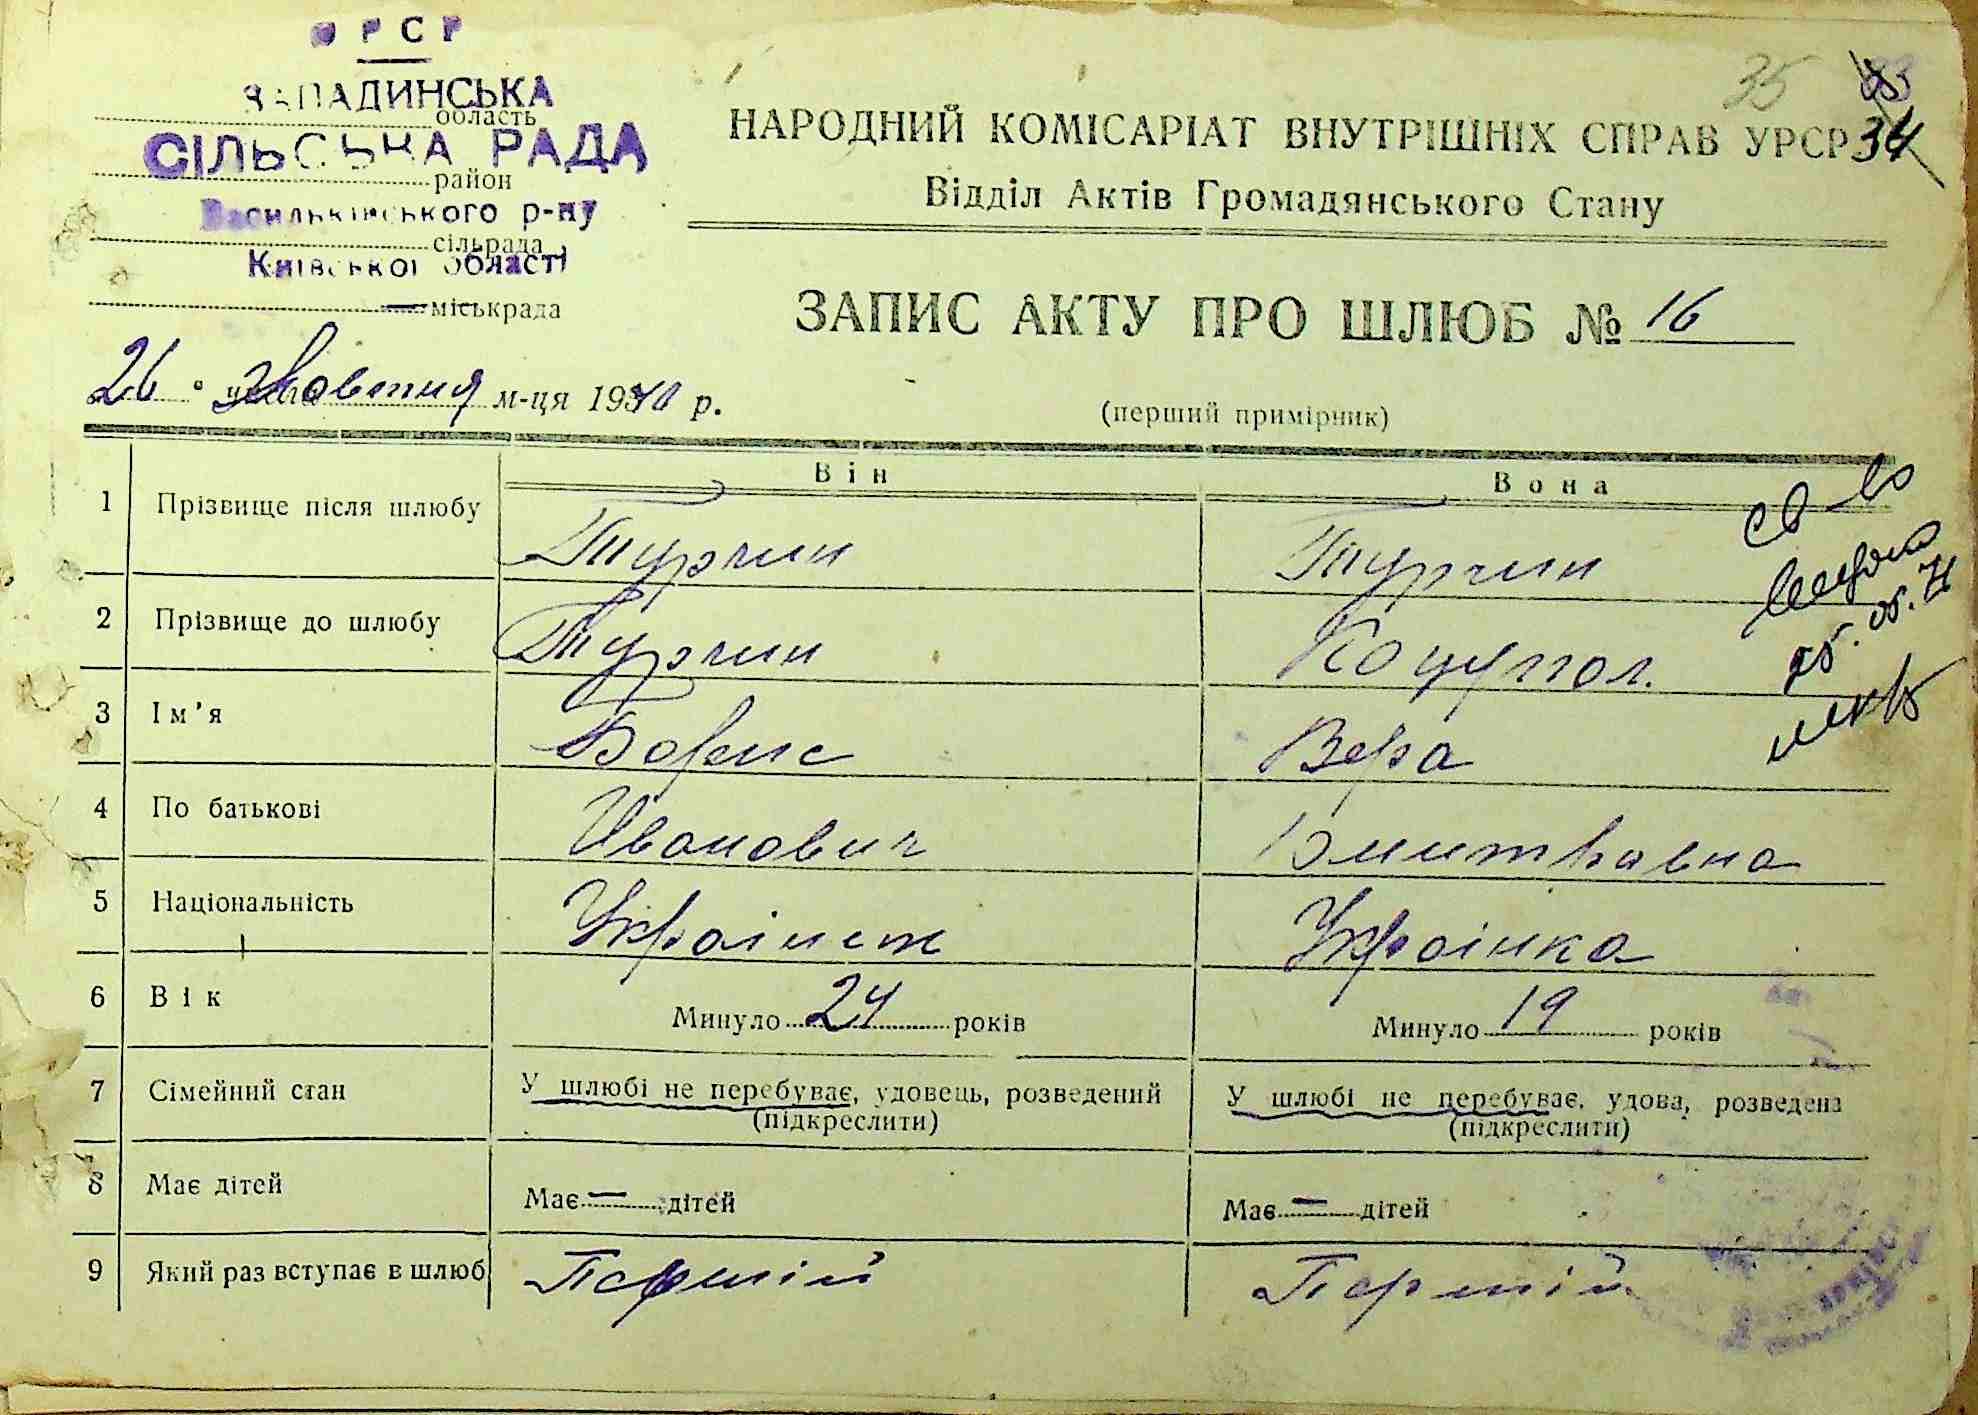 УРСР
ЗАПАДИНСЬКА
область
СІЛЬСЬКА РАДА
район
Васильківського р-ну
сільрада
Київської області
міськрада
35
34
НАРОДНИЙ КОМІСАРІАТ ВНУТРІШНІХ СПРАВ УРСР
Відділ Актів Громадянського Стану
ЗАПИС АКТУ ПРО ШЛЮБ № 16
26 Жовтня м-ця 1940 р.
(перший примірник)
Він Вона
1 Прізвище після шлюбу Турчин Турчин
2 Прізвище до шлюбу Турчин
3 Ім'я Борис Вера
4 По батькові Иванович Дмитравна
5 Національність Украінец Украінка
6 Вік Минуло 24 років Минуло 19 років
7 Сімейний стан У шлюбі не перебуває, удовець, розведений У шлюбі не перебуває, удова, розведена
(підкреслити) (підкреслити)
8 Має дітей Має — дітей Має — дітей
9 Який раз вступає в шлюб Першій Першій